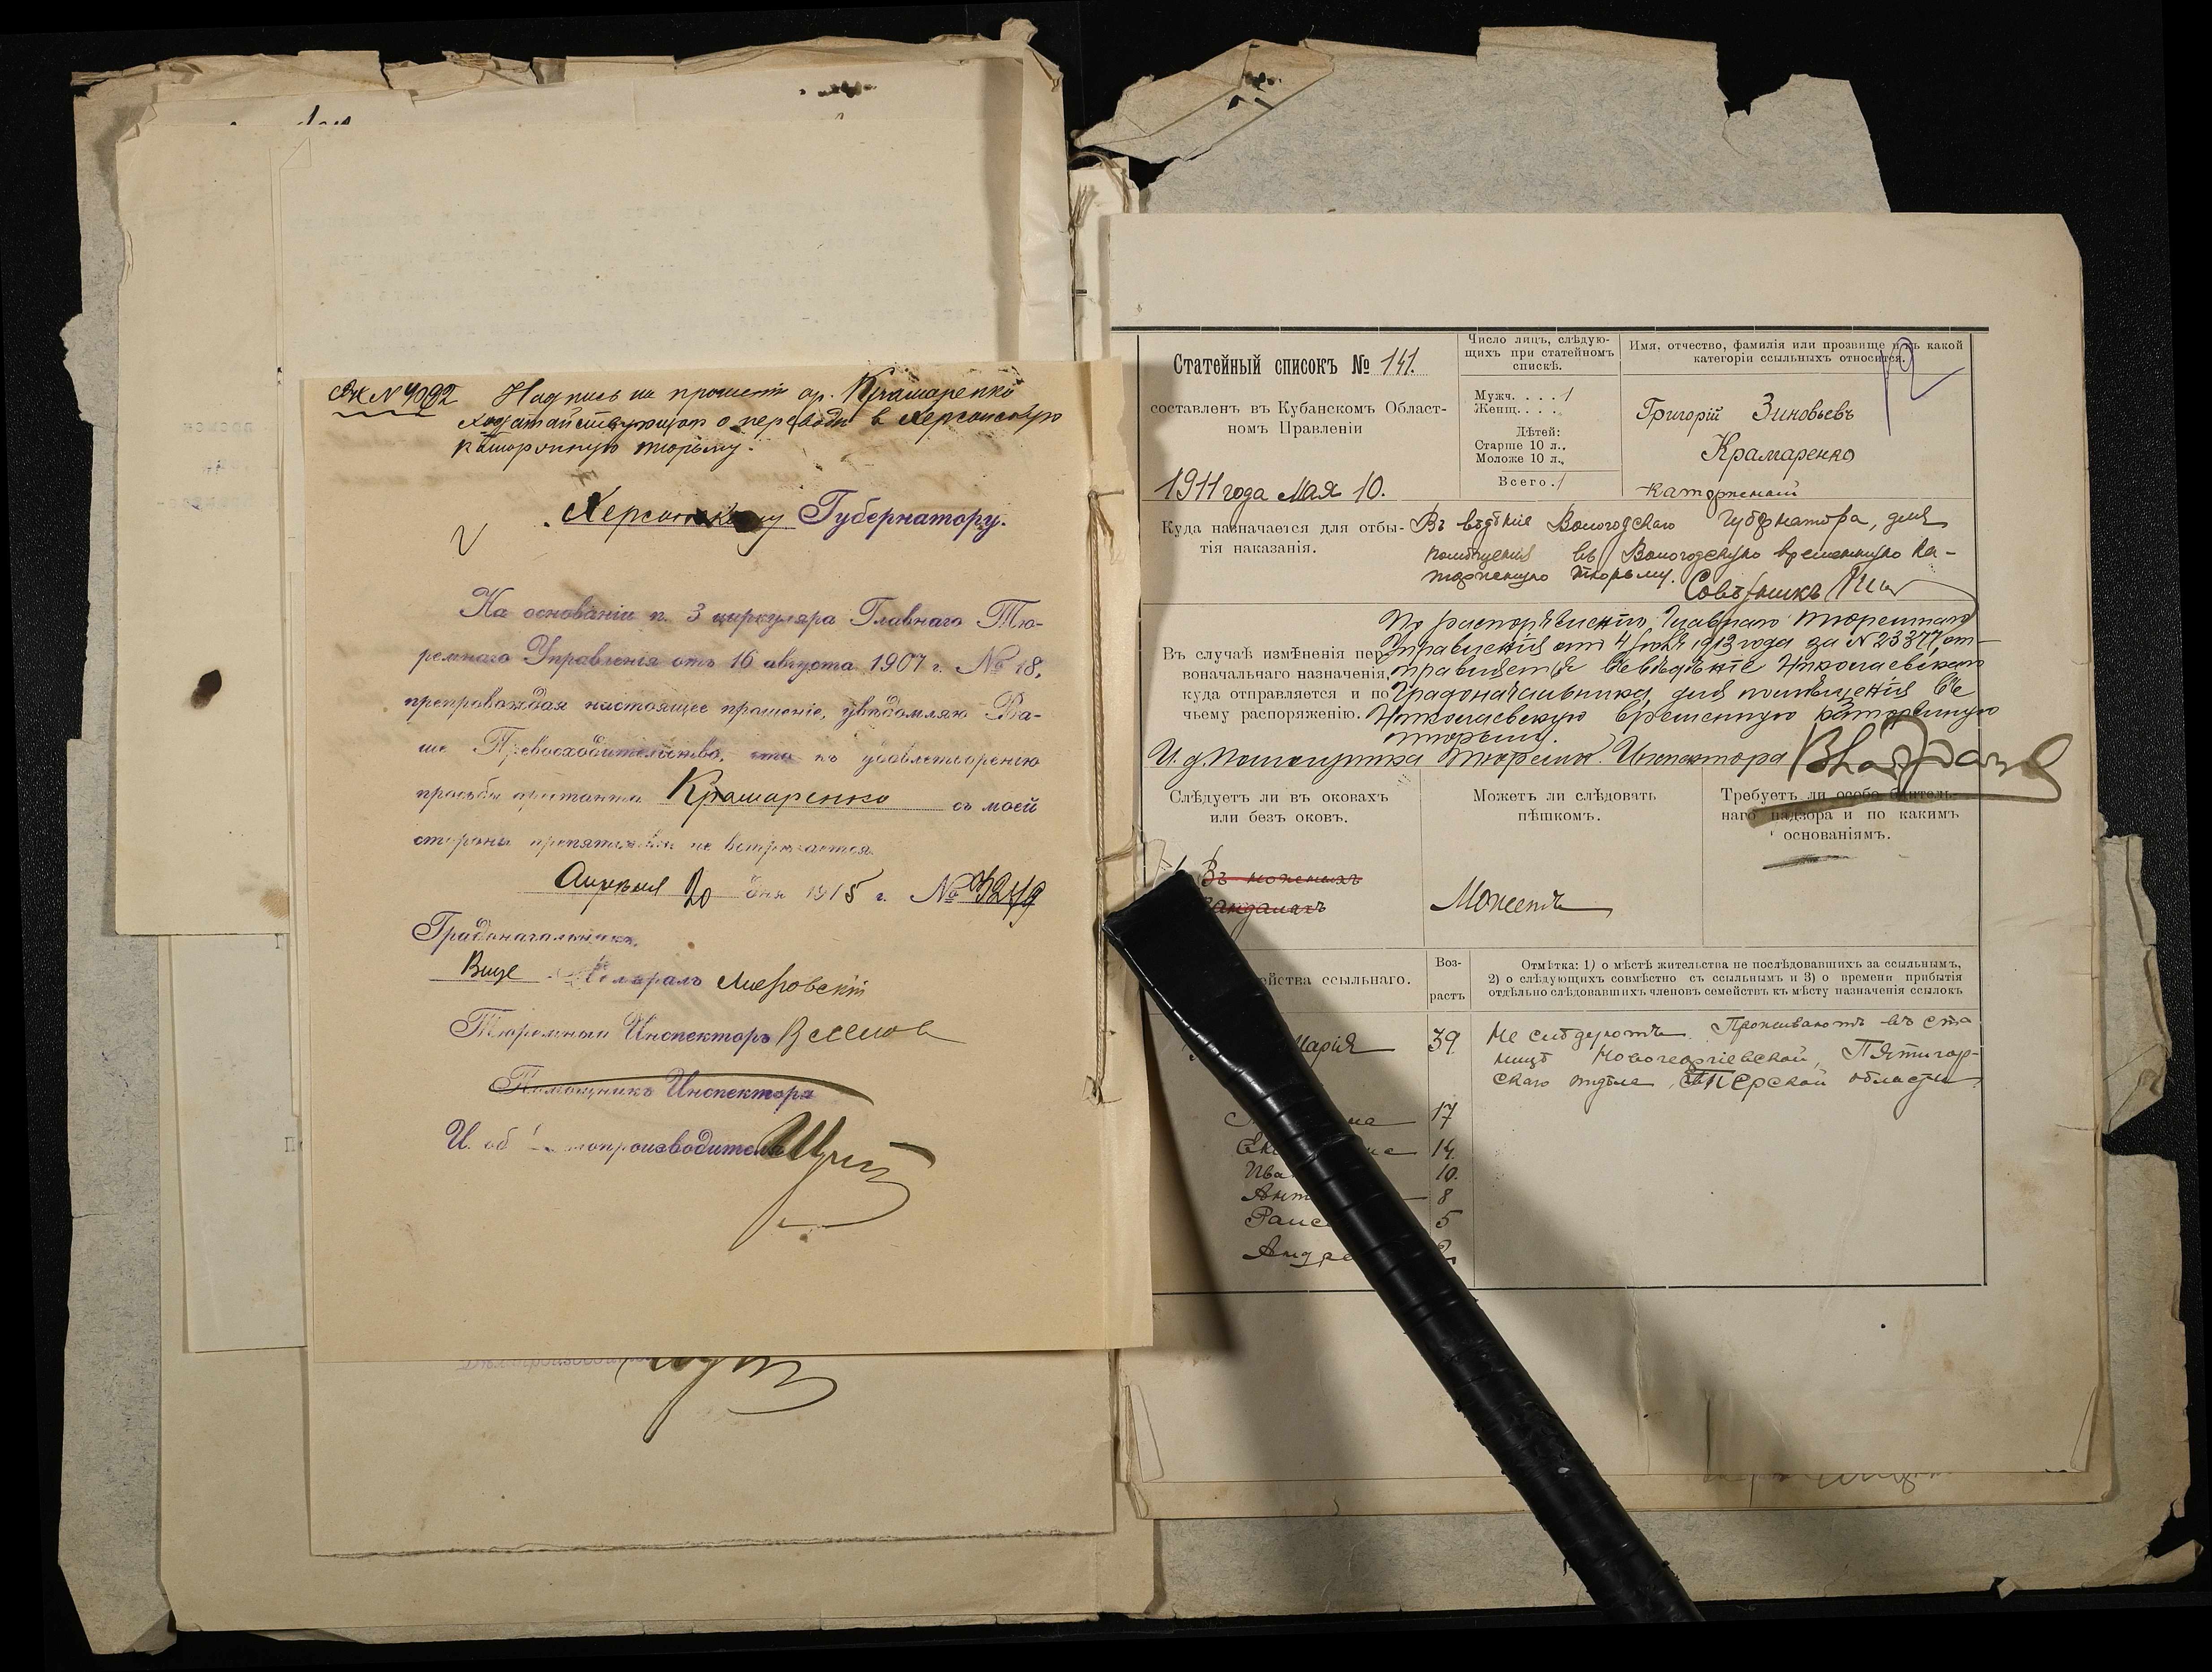 Вх №4092 Надпись на прошеніи ар. Крамаренко
ходатайствующаго о переводѣ в Херсонскую
каторжную тюрьму.
Херсонскому Губернатору.
На основаніи п. 3 циркуляра Главнаго Тю-
ремнаго Управленія отъ 16 августа 1907 г. № 18,
препровождая настоящее прошеніе, увѣдомляю Ва-
ше Превосходительство, что къ удовлетворенію
просьбы арестанта Крамаренко съ моей
стороны препятствій не встрѣчается.
Апрѣля 20 дня 1915 г. № 3249
Градоначальникъ,
Вице Адмиралъ
Тюремный Инспекторъ
Помощникъ Инспектора
И. об. Дѣлопроизводителя
Статейный списокъ № 141.
составленъ въ Кубанскомъ Област-
номъ Правленіи
1911 года Мая 10.
Число лицъ, слѣдую-
щихъ при статейномъ
спискѣ.
Мужч. . . . 1
Женщ. . . .
Дѣтей:
Старше 10 л..
Моложе 10 л.,
Всего . 1
Имя, отчество, фамилія или прозвище и къ какой
категоріи ссыльныхъ относится.
Григорій Зиновьевъ
Крамаренко
каторжный
Куда назначается для отбы-
тія наказанія.
Въ вѣдѣніе Вологодскаго Губернатора, для
помѣщенія въ Вологодскую временную ка-
торжную тюрьму. Совѣтникъ
Въ случаѣ измѣненія пер-
воначальнаго назначенія,
куда отправляется и по
чьему распоряженію.
По распоряженію Главнаго Тюремнаго
Управленія отъ 4 1913 года за № 23377, от-
правляется въ вѣдѣніе Николаевскаго
Градоначальника, для помѣщенія въ
Николаевскую временную каторжную
тюрьму.
И. д. Помощника Тюремн. Инспектора
Слѣдуетъ ли въ оковахъ
или безъ оковъ.
Въ ножныхъ
кандалахъ
Можетъ ли слѣдовать
пѣшкомъ.
Можетъ
Требуетъ ли особо бдитель-
наго надзора и по какимъ
основаніямъ.
ейства ссыльнаго.
Воз-
растъ
Отмѣтка: 1) о мѣстѣ жительства не послѣдовавшихъ за ссыльнымъ,
2) о слѣдующихъ совмѣстно съ ссыльнымъ и 3) о времени прибытія
отдѣльно слѣдовавшихъ членовъ семействъ къ мѣсту назначенія ссылокъ
Марія 39
Не слѣдуютъ. Проживаютъ въ ста
ницѣ Новогеоргіевской, Пятигор-
скаго отдѣла, Терской области
17
14.
Ива 10.
Ант 8
Раис 5
Андре